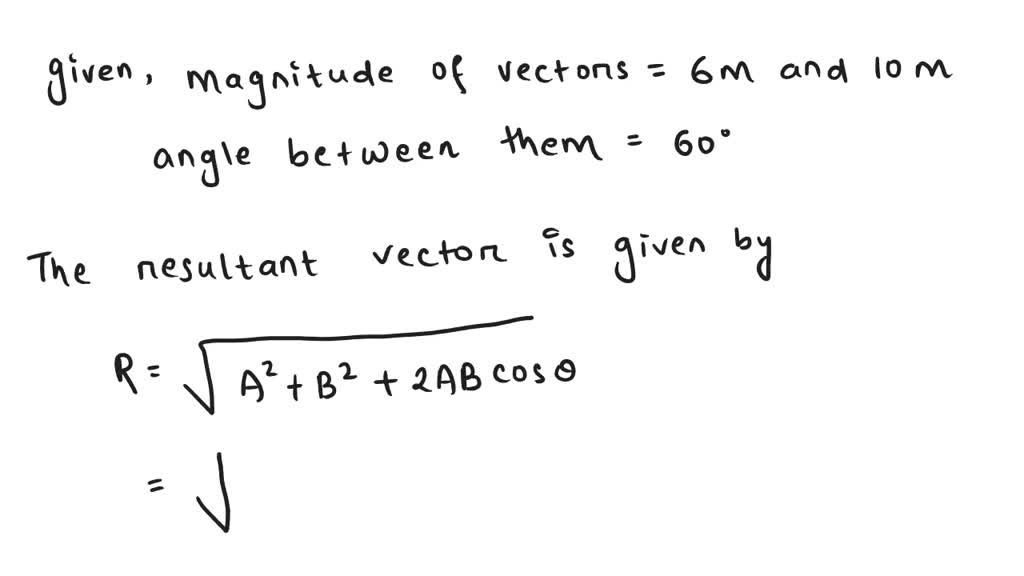 given, magnitude of vectors = 6m and 10m
angle between them = 60°
The resultant vector is given by
R = √A² + B² + 2AB cos θ
= √